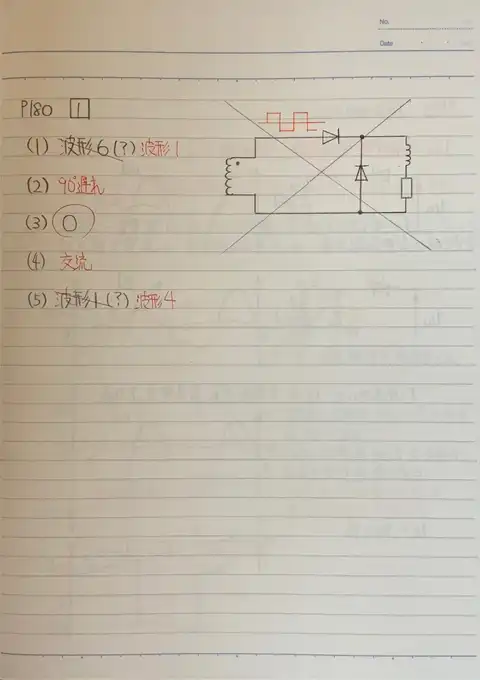 No.
Date
P180 1
(1) 波形6(?) 波形1
(2) 90°遅れ
(3) 0
(4) 交流
(5) 波形1(?) 波形4